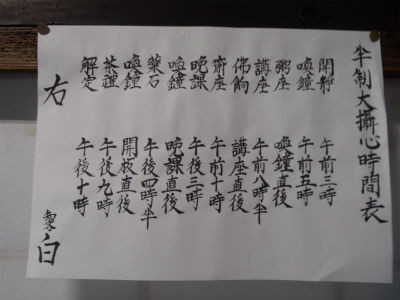 半制大攝心時間表
開静 午前三時
喚鐘 午前五時
粥座 喚鐘直後
講座 午前八時半
佛餉 講座直後
齋座 午前十時
晩課 午後三時
喚鐘 晩課直後
藥石 午後四時半
喚鐘 開板直後
茶禮 午後九時
解定 午後十時
右
製白